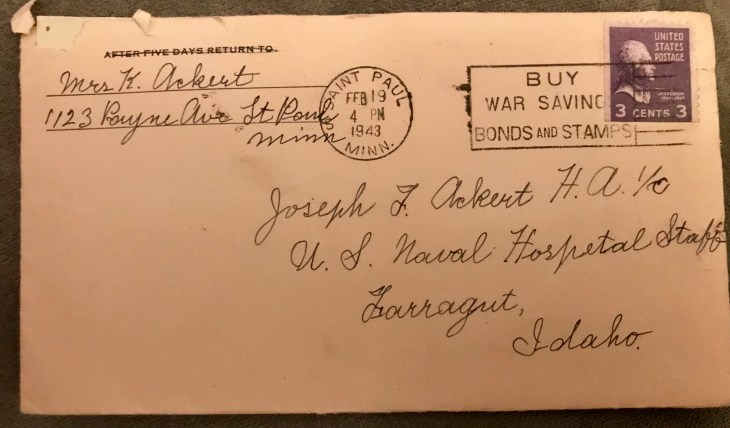 AFTER FIVE DAYS RETURN TO
Mrs K. Ackert
1123 Payne Ave St Paul
Minn
SAINT PAUL
FEB 19
4 PM
1943
MINN.
BUY
WAR SAVINGS
BONDS AND STAMPS
UNITED
STATES
POSTAGE
JEFFERSON
3 CENTS 3
Joseph F. Ackert H.A. 1/c
U. S. Naval Hospetal Staff
Farragut,
Idaho.